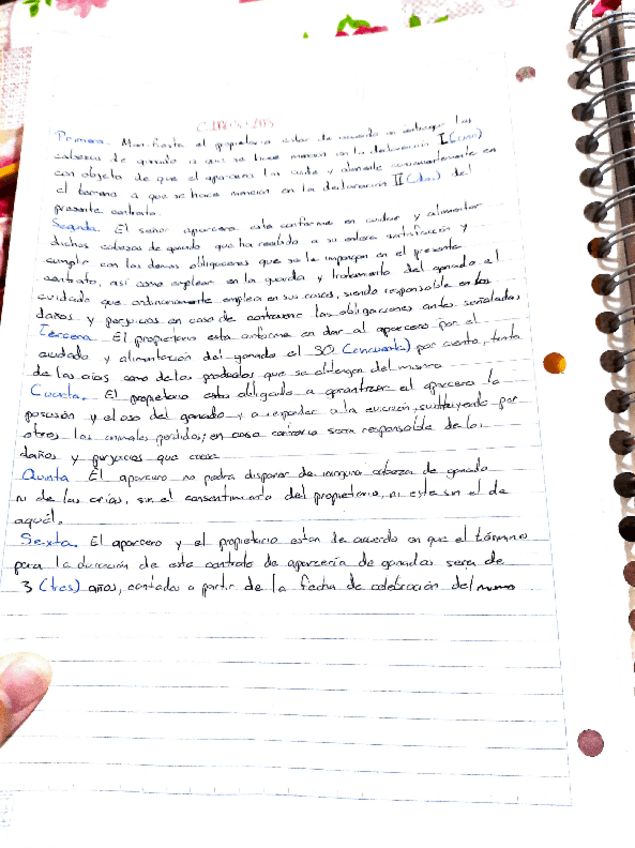 Primera. Manifiesta el propietario estar de acuerdo en entregar las
cabezas de ganado a que se hace mención en la declaración I (uno)
con objeto de que el aparcero las cuide y alimente convenientemente en
el terreno a que se hace mención en la declaración II (dos) del
presente contrato.
Segunda. El señor aparcero esta conforme en cuidar y alimentar
dichas cabezas de ganado que ha recibido a su entera satisfacción y
cumplir con las demas obligaciones que se le impongan en el presente
contrato, así como emplear en la guarda y tratamiento del ganado el
cuidado que ordinariamente emplea en sus cosas, siendo responsable en los
daños y perjuicios en caso de contravenir las obligaciones antes señaladas
Tercera. El propietario esta conforme en dar al aparcero por el
cuidado y alimentación del ganado el 50 (cincuenta) por ciento, tanto
de las crias como de los productos que se obtengan del mismo
Cuarta. El propietario esta obligado a garantizar al aparcero la
posesión y el uso del ganado y a responder a la evicción, sustituyendo por
otros los animales perdidos; en caso contrario sera responsable de los
daños y perjuicios que cause
Quinta El aparcero no podra disponer de ninguna cabeza de ganado
ni de las crías, sin el consentimiento del propietario, ni este sin el de
aquél.
Sexta. El aparcero y el propietario estan de acuerdo en que el término
para la duración de este contrato de aparcería de ganados sera de
3 (tres) años, contados a partir de la fecha de celebración del mismo.